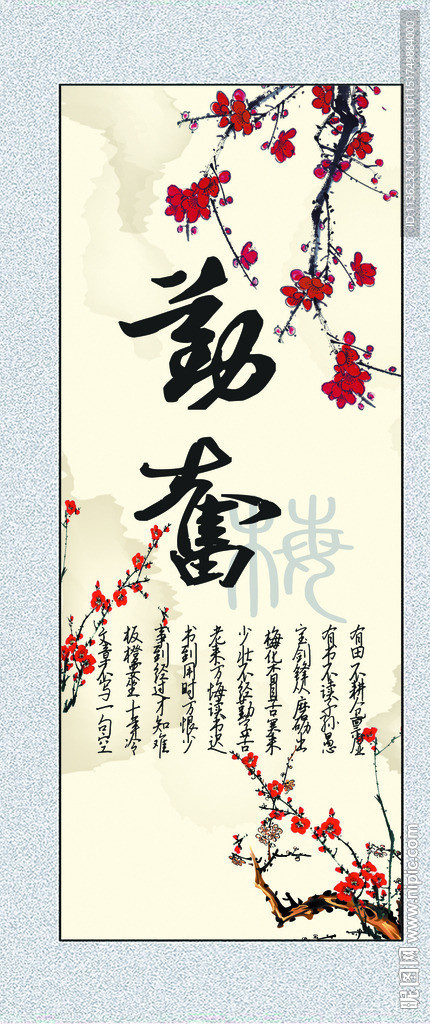 勤奋
梅
有田不耕仓禀虚
有书不读子孙愚
宝剑锋从磨砺出
梅花香自苦寒来
少壮不经勤学苦
老来方悔读书迟
书到用时方恨少
事到经过才知难
板櫈要坐十年冷
文章不写一句空
ID:1136321 NO:20131011151749984000
昵图网 www.nipic.com